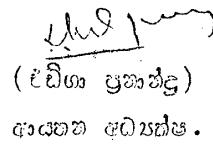 (එඩ්ගා ප්‍රනාන්දු)
ආයතන අධ්‍යක්ෂ.